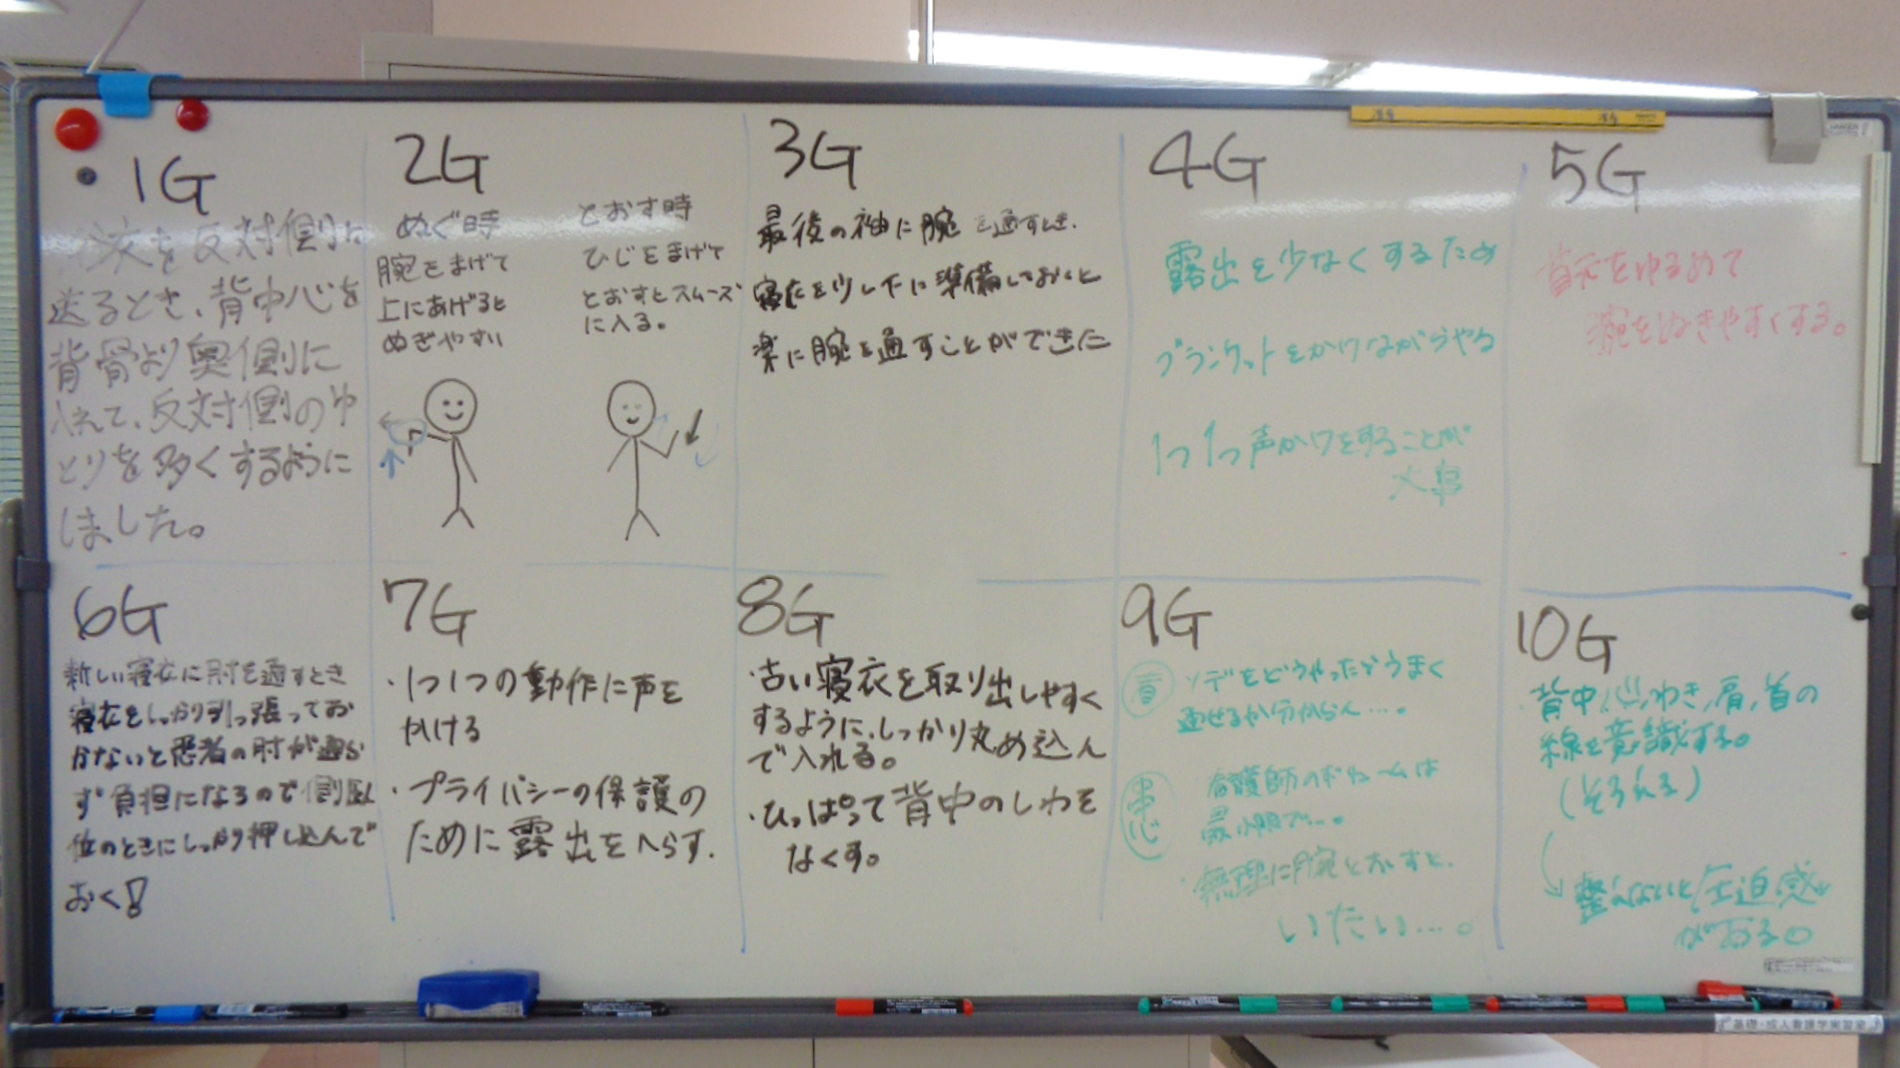 1G
衣を反対側に
送るとき、背中心を
背骨より奥側に
入れて、反対側のゆ
とりを多くするように
しました。
2G
ぬぐ時
腕をまげて
上にあげると
ぬぎやすい
とおす時
ひじをまげて
とおすとスムーズ
に入る。
3G
最後の袖に腕を通すとき、
寝衣を少し下に準備しておくと
楽に腕を通すことができた
4G
露出を少なくするため
ブランケットをかけながらやる
1つ1つ声かけをすることが
大事
5G
をゆるめて
腕をぬきやすくする。
6G
新しい寝衣に肘を通すとき
寝衣をしっかり引っ張ってお
かないと患者の肘が通ら
ず負担になるので側臥
位のときにしっかり押し込んで
おく!
7G
・1つ1つの動作に声を
かける
・プライバシーの保護の
ために露出をへらす.
8G
・古い寝衣を取り出しやすく
するように、しっかり丸め込ん
で入れる。
・ひっぱって背中のしわを
なくす。
9G
ソデをどうやったらうまく
通せるか分からん…。
看護師のボリュームは
最小限で…。
・無理に腕とおすと、
いたい…。
10G
・背中心、わき、肩、首の
線を意識する。
(そろえる)
整わないと圧迫感
がある。
基礎・成人看護学実習室